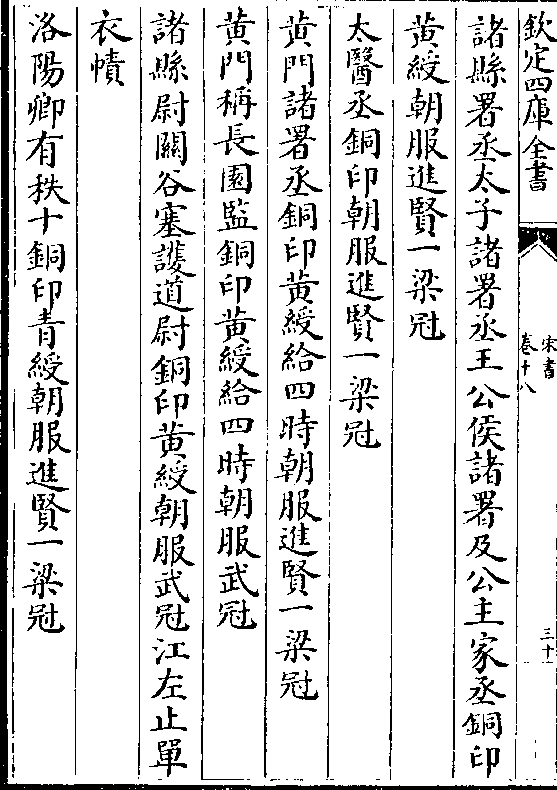 欽定四庫全書
宋書
卷十八
三十
諸縣署丞太子諸署丞王公侯諸署及公主家丞銅印
黃綬朝服進賢一梁冠
太醫丞銅印朝服進賢一梁冠
黃門諸署丞銅印黃綬給四時朝服進賢一梁冠
黃門稱長園監銅印黃綬給四時朝服武冠
諸縣尉關谷塞護道尉銅印黃綬朝服武冠江左止單
衣幘
洛陽卿有秩十銅印青綬朝服進賢一梁冠